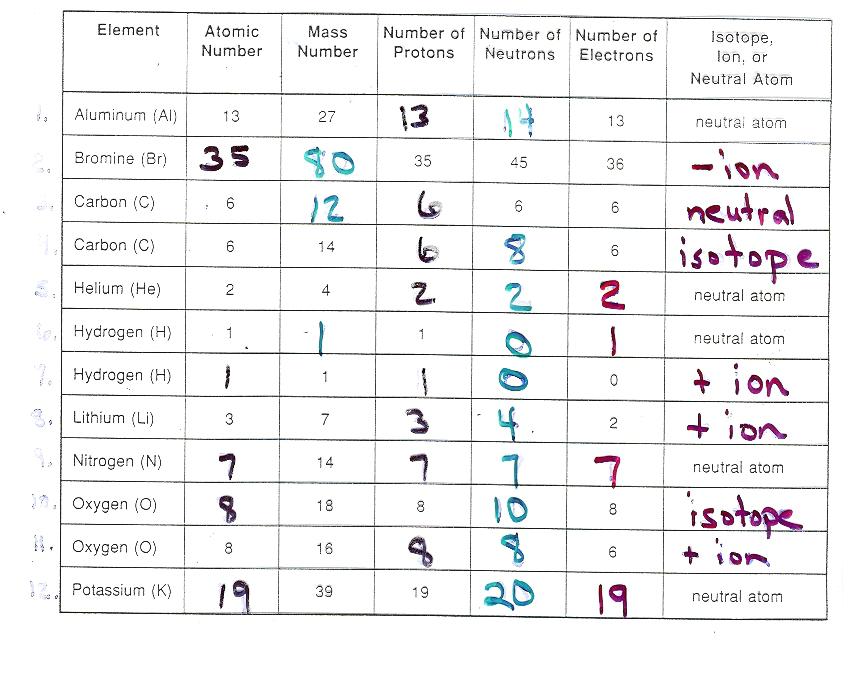 Element Atomic Number Mass Number Number of Protons Number of Neutrons Number of Electrons Isotope, Ion, or Neutral Atom
1. Aluminum (Al) 13 27 13 14 13 neutral atom
2. Bromine (Br) 35 80 35 45 36 - ion
Carbon (C) 6 12 6 6 6 neutral
4. Carbon (C) 6 14 6 8 6 isotope
5. Helium (He) 2 4 2 2 2 neutral atom
6. Hydrogen (H) 1 1 1 0 1 neutral atom
7. Hydrogen (H) 1 1 1 0 0 + ion
8. Lithium (Li) 3 7 3 4 2 + ion
9. Nitrogen (N) 7 14 7 7 7 neutral atom
10. Oxygen (O) 8 18 8 10 8 isotope
11. Oxygen (O) 8 16 8 8 6 + ion
12. Potassium (K) 19 39 19 20 19 neutral atom